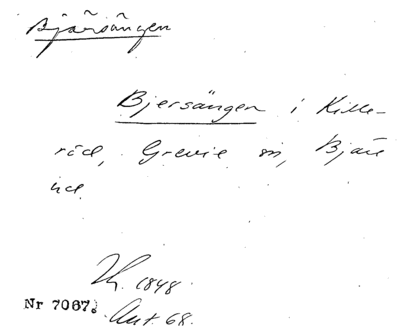 Bjärsången
Bjersängen i Kille-
röd, Grevie sn, Bjäre
hd.
Th. 1848
Nr 7067.
Ant. 68.